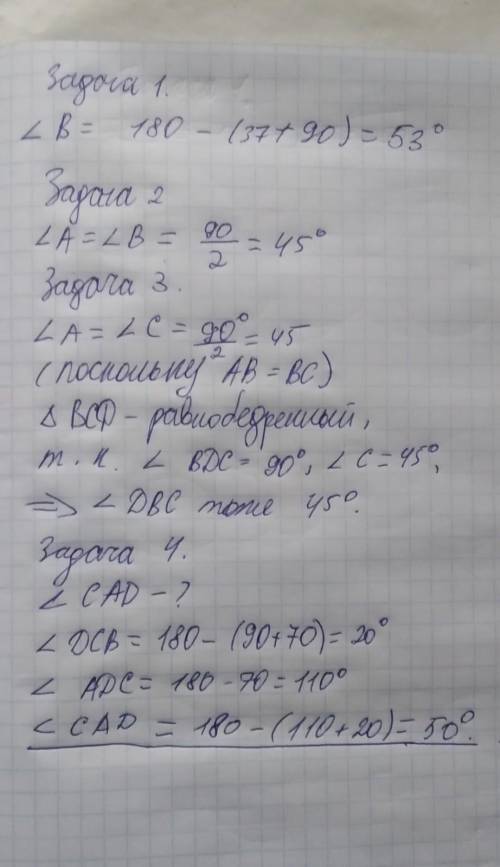 Задача 1.
∠ B = 180 - (37 + 90) = 53°
Задача 2
∠A = ∠B = 90/2 = 45°
Задача 3.
∠A = ∠C = 90°/2 = 45
(поскольку AB = BC)
Δ BCD - равнобедренный,
т.к. ∠ BDC = 90°, ∠C = 45°,
=> ∠ DBC тоже 45°.
Задача 4.
∠ CAD - ?
∠ DCB = 180 - (90+70) = 20°
∠ ADC = 180 - 70 = 110°
∠ CAD = 180 - (110 + 20) = 50°.